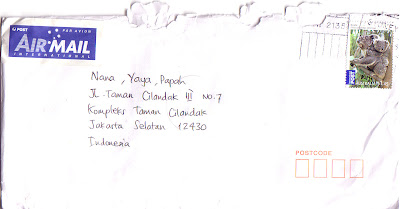 POST PAR AVION
AIR MAIL
INTERNATIONAL
2135
Nana, Yaya, Papah
Jl. Taman Cilandak III No. 7
Kompleks Taman Cilandak
Jakarta Selatan 12430
Indonesia
POSTCODE